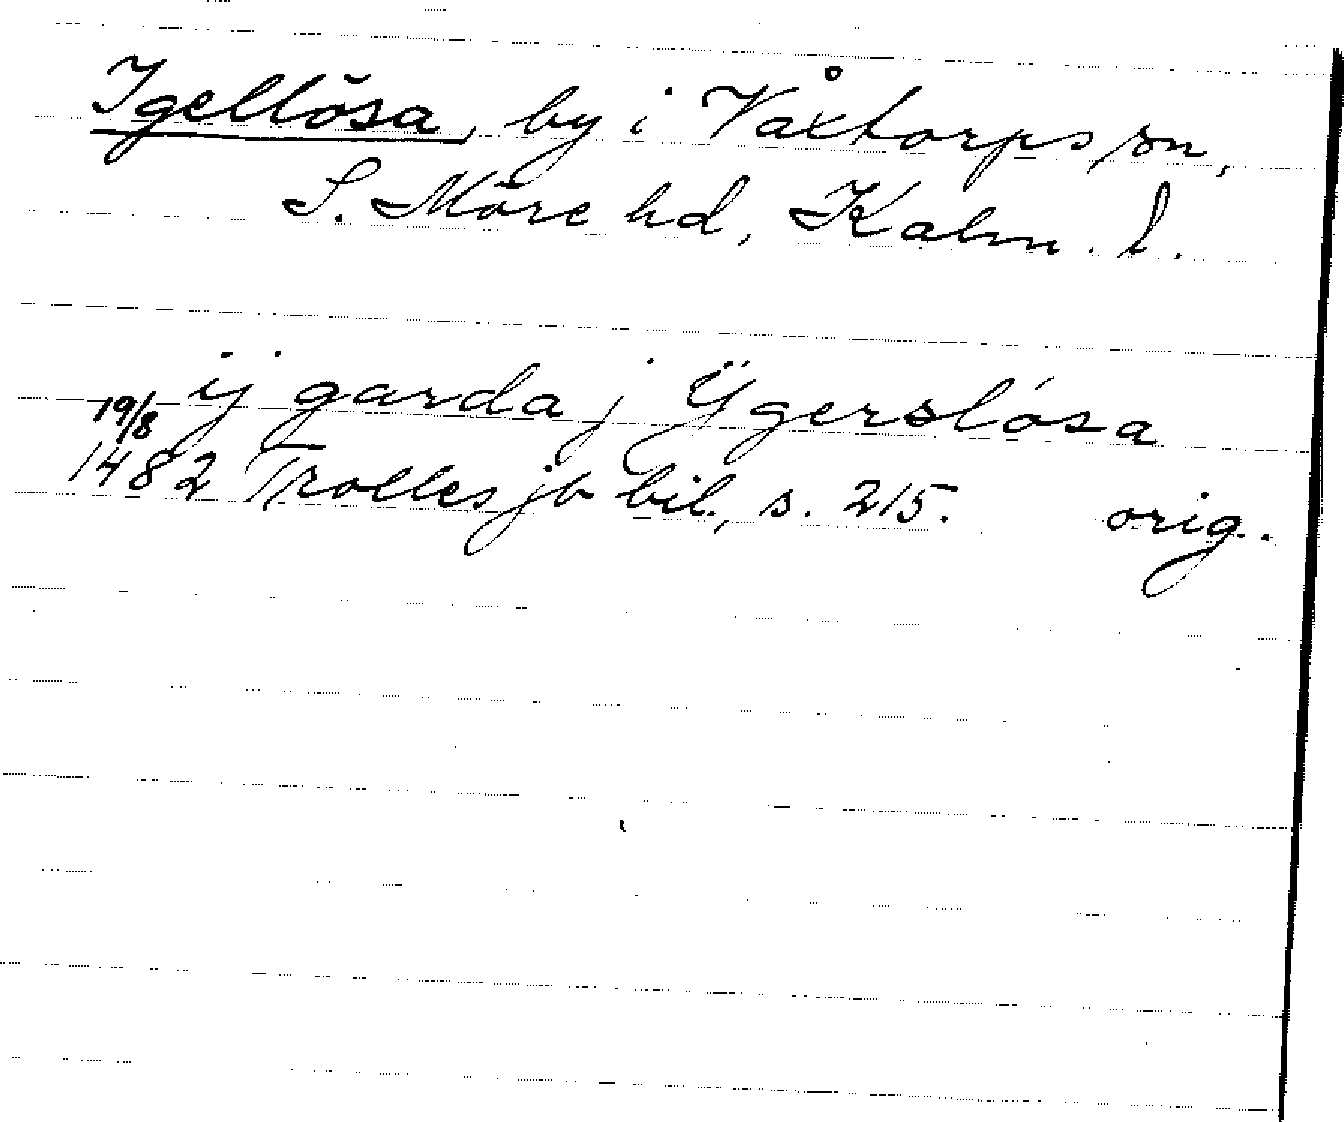 Igellösa, by i Växtorps sn,
S. Möre hd, Kalm. l.
ij garda j Ÿgerslósa
19/8 1482 Trolles jb bil., s. 215. orig.